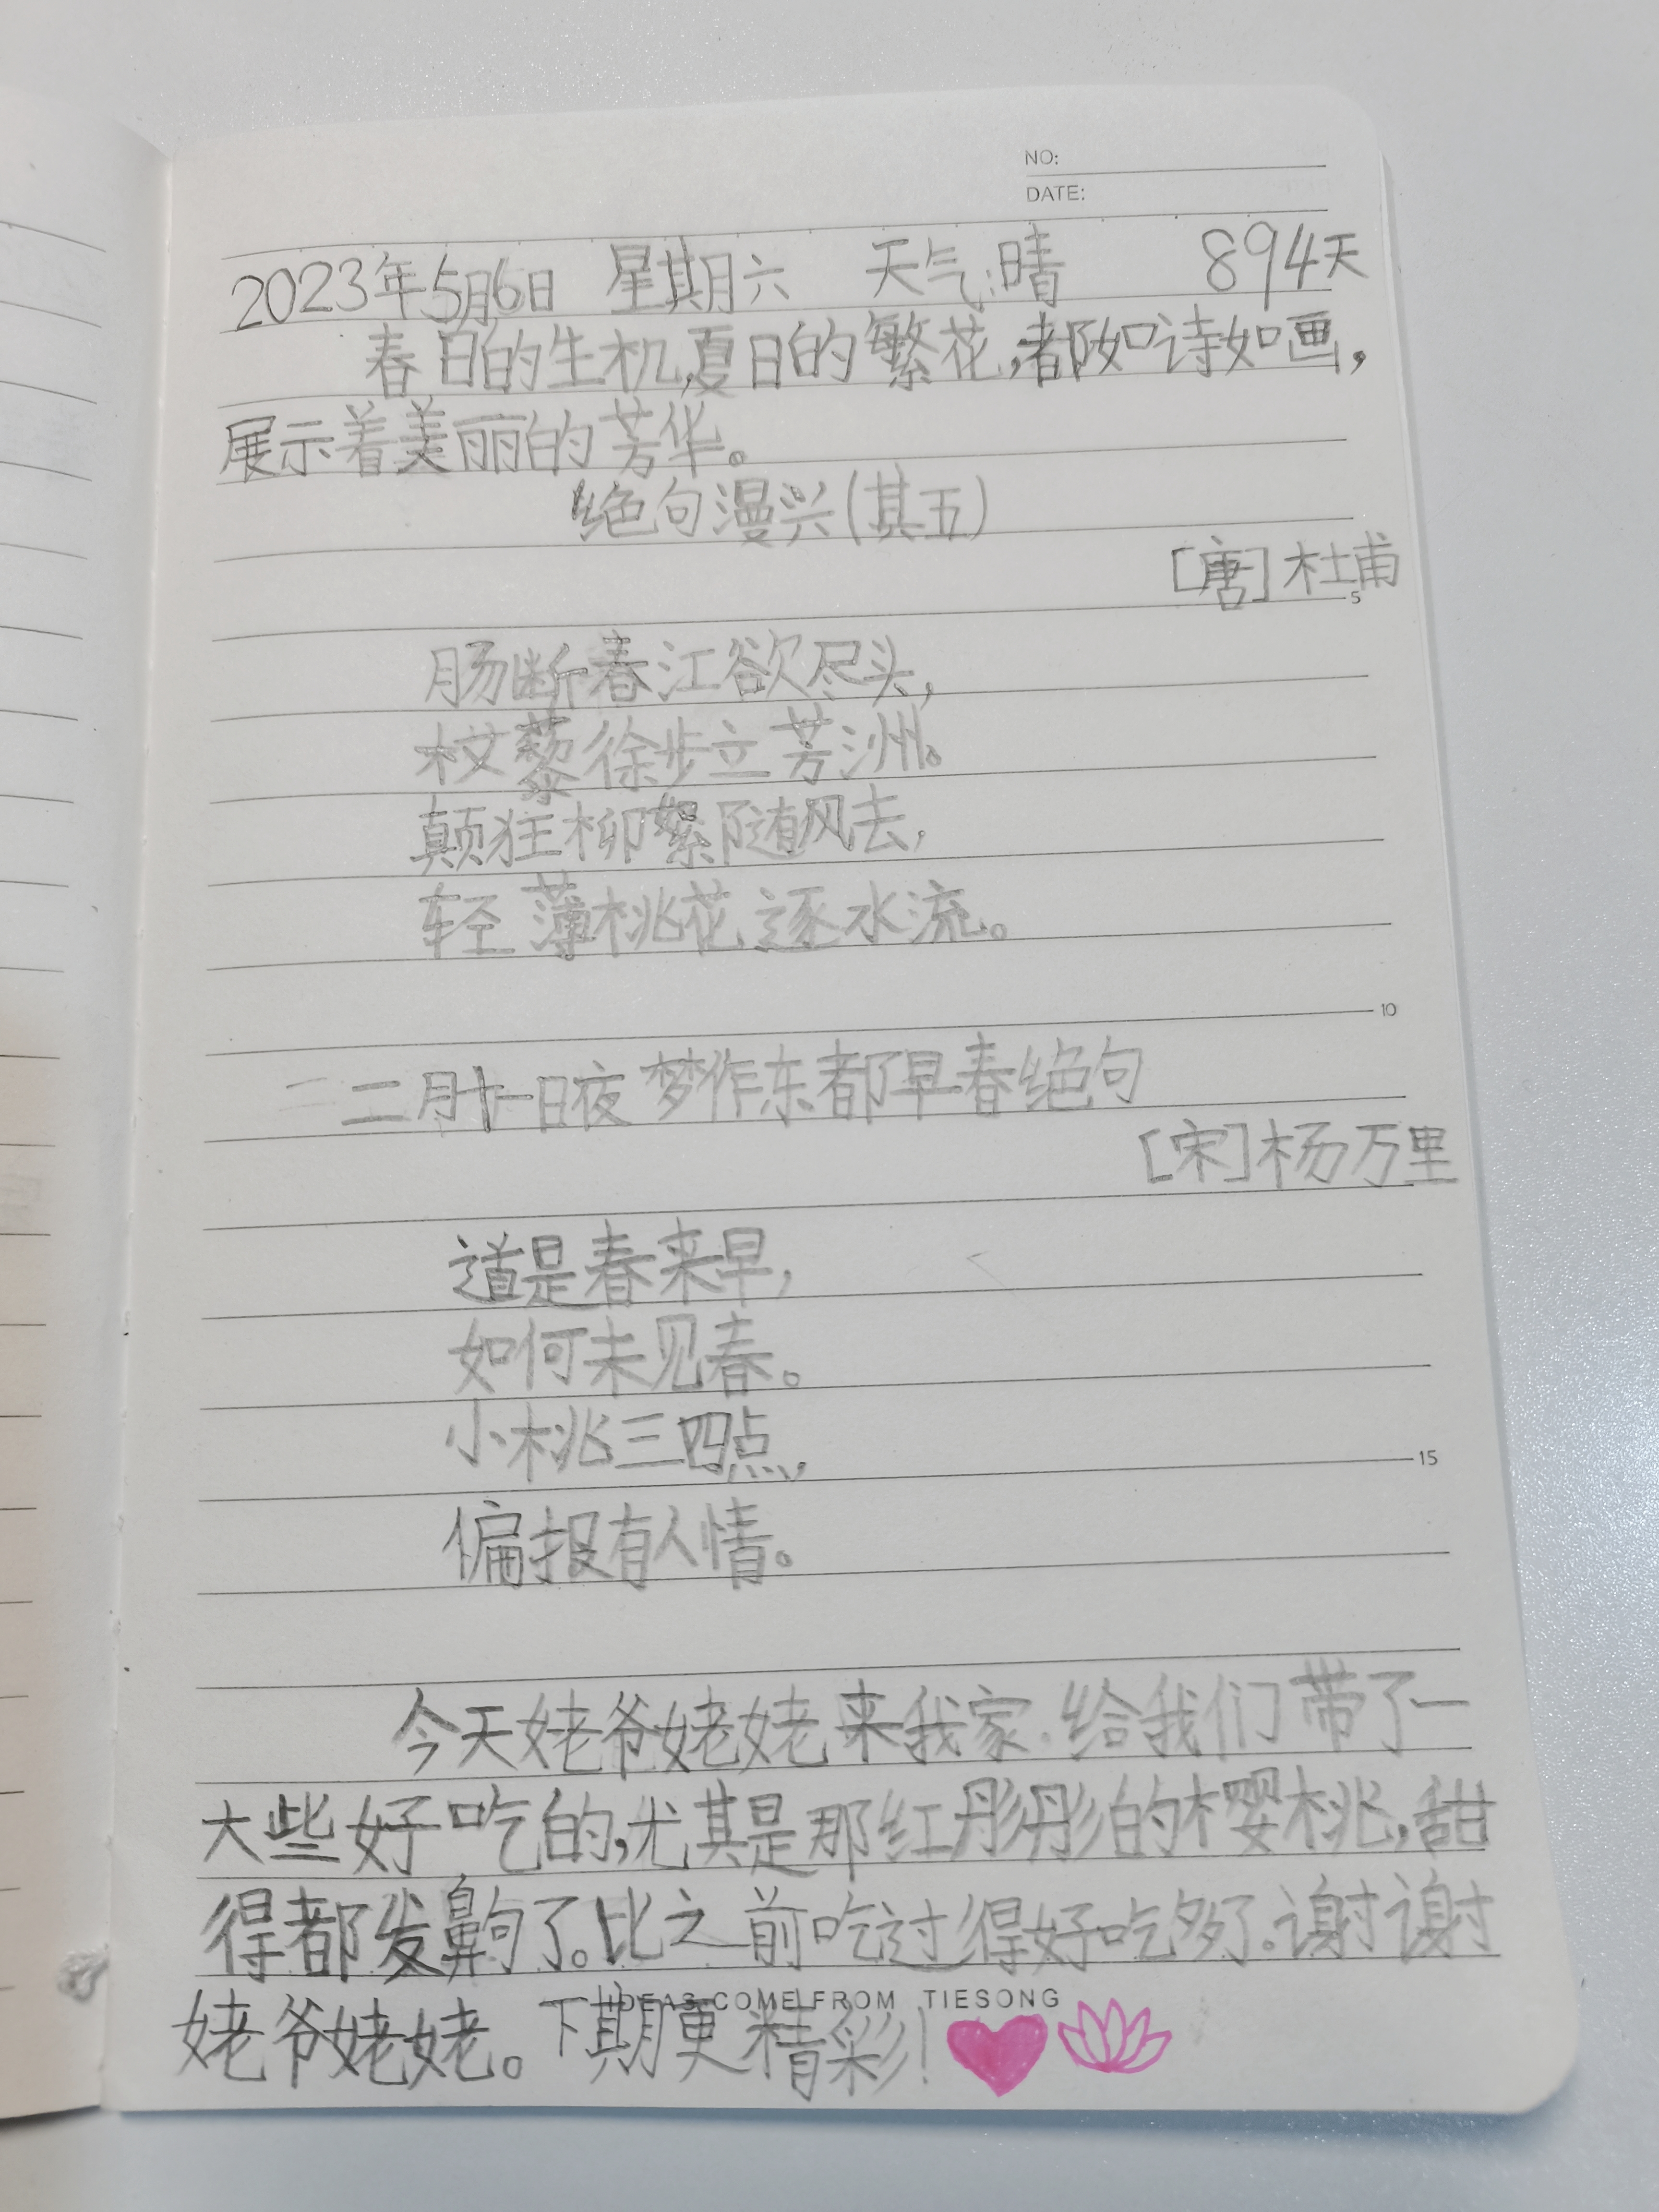 NO:
DATE:
2023年5月6日 星期六 天气:晴 894天
春日的生机,夏日的繁花,都如诗如画,
展示着美丽的芳华。
绝句漫兴(其五)
[唐]杜甫
5
肠断春江欲尽头,
杖藜徐步立芳洲。
颠狂柳絮随风去,
轻薄桃花逐水流。
10
二月十一日夜梦作东都早春绝句
[宋]杨万里
道是春来早,
如何未见春。
小桃三四点,
偏报有人情。
15
今天姥爷姥姥来我家.给我们带了一
大些好吃的,尤其是那红彤彤的樱桃,甜
得都发齁了。比之前吃过得好吃多了。谢谢
IDEAS COME FROM TIESONG
姥爷姥姥。下期更精彩!